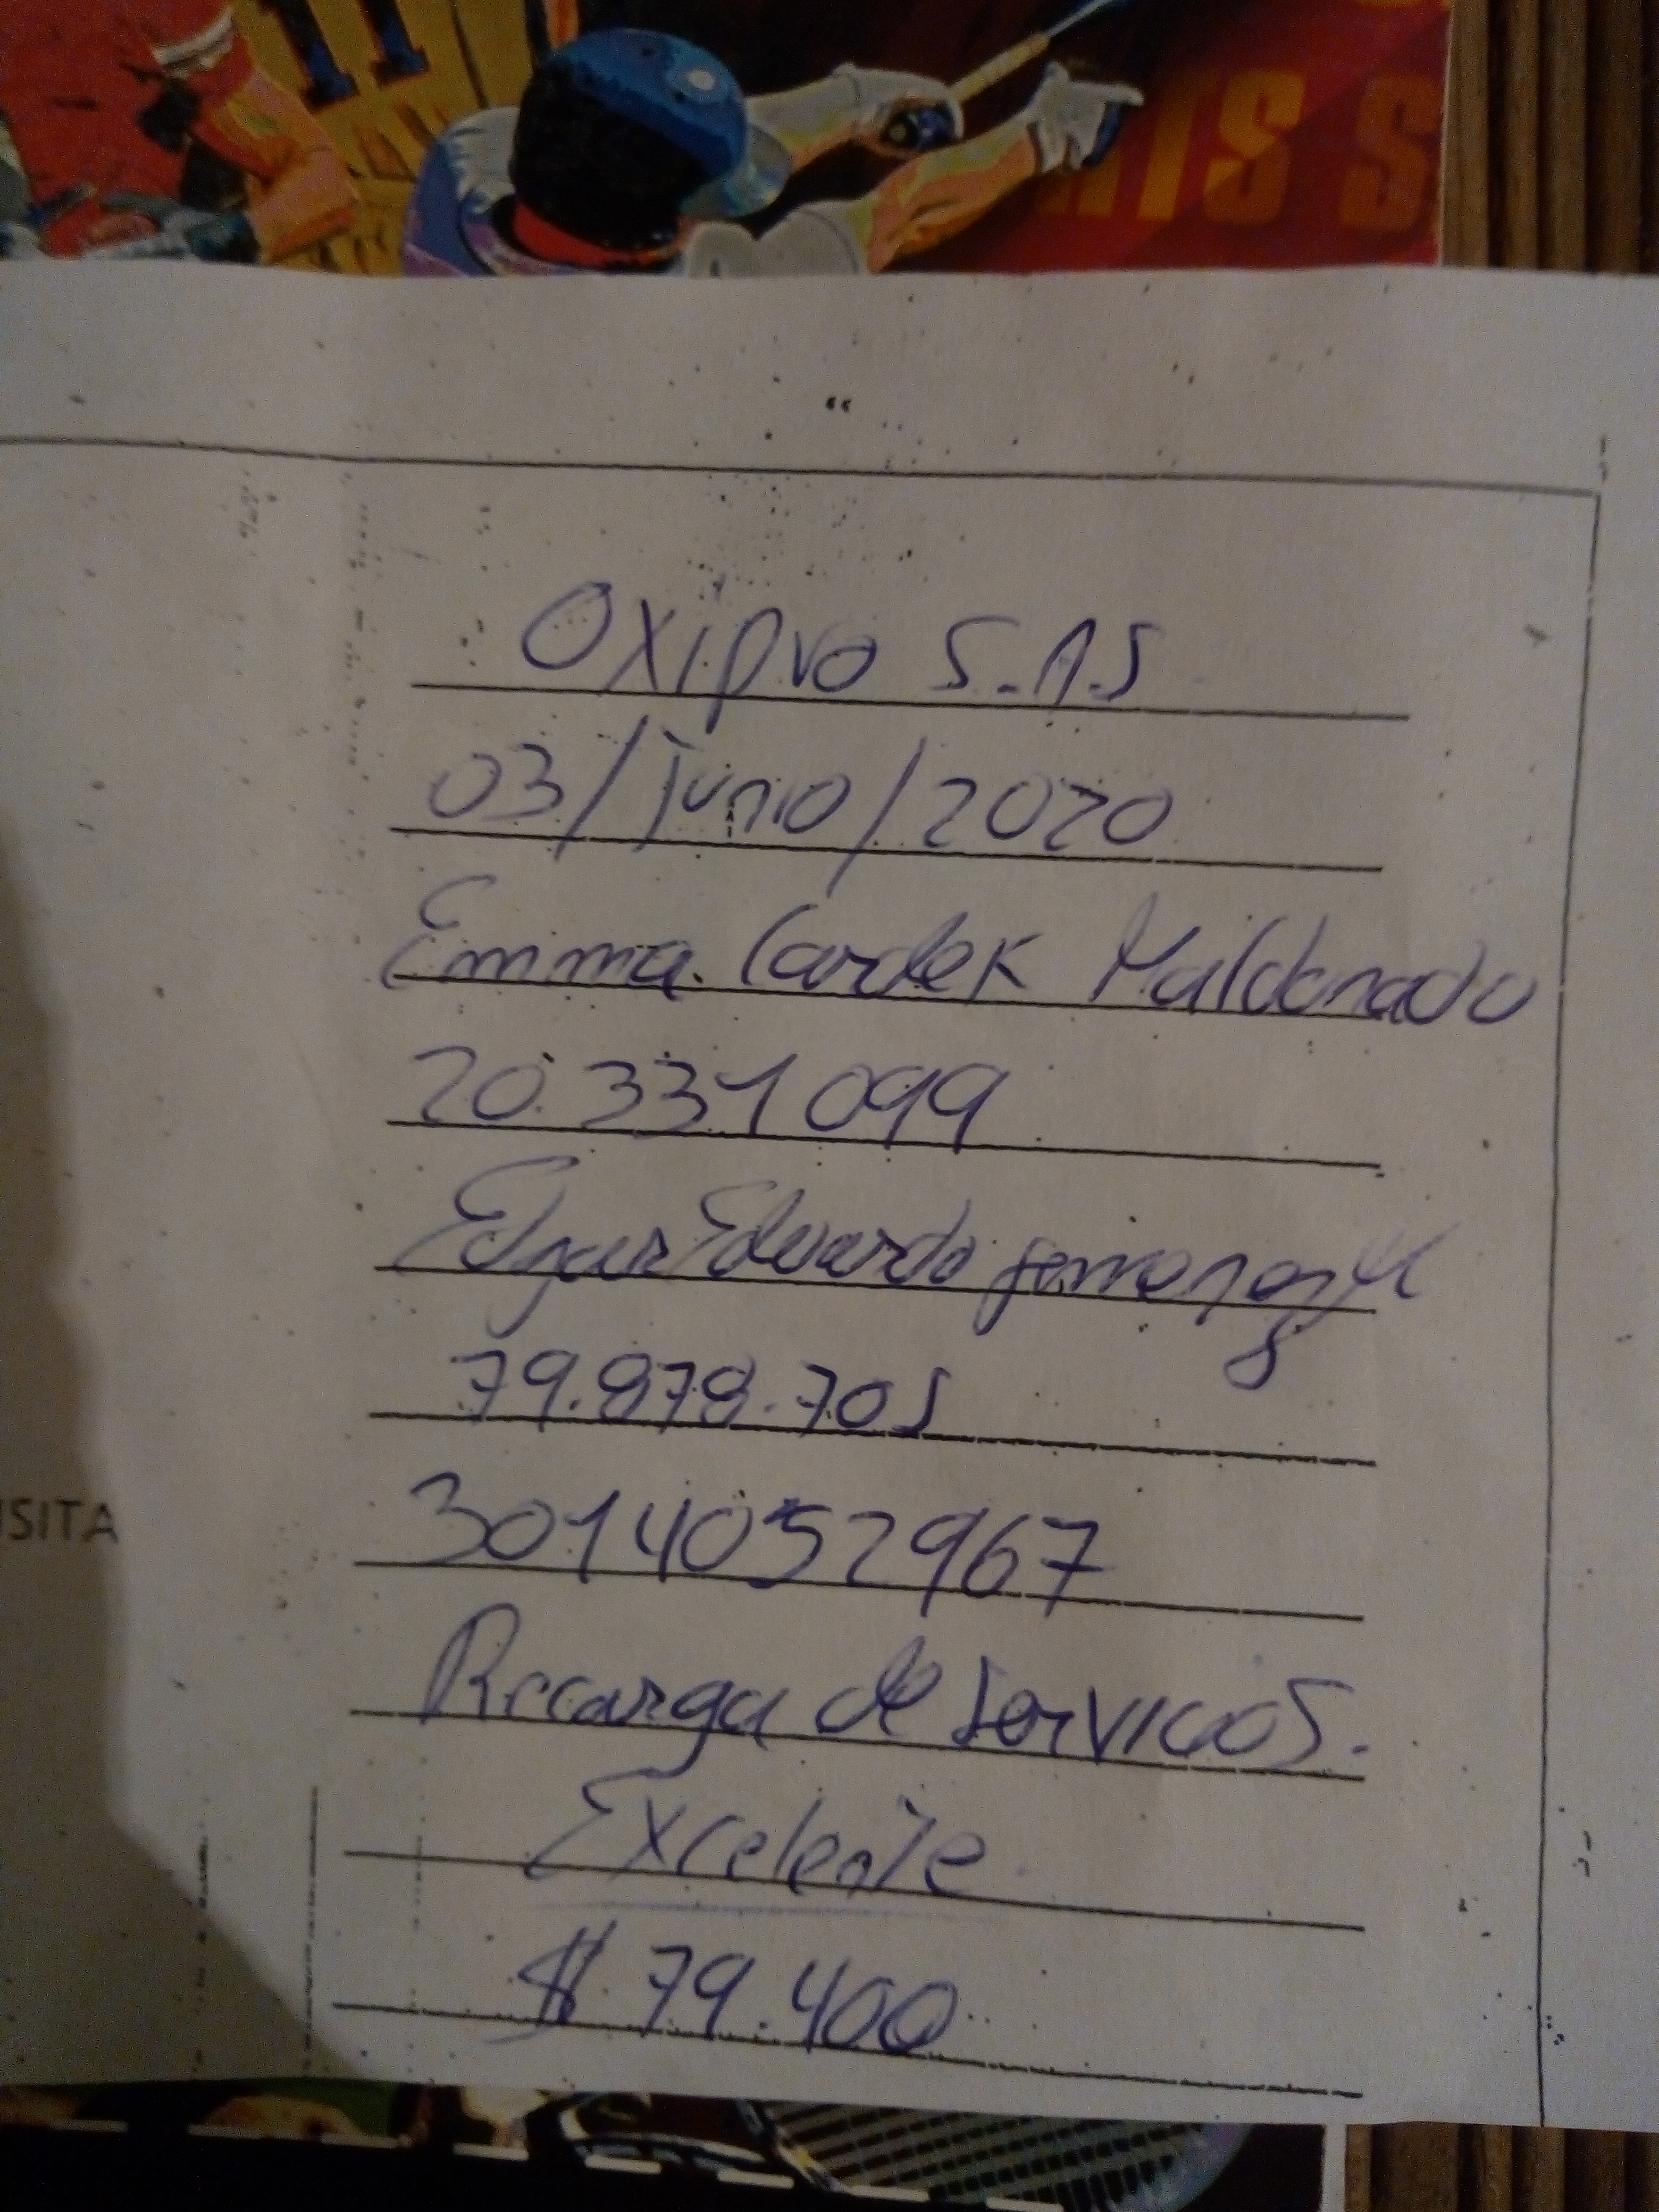 ITS S
“
Oxipro S.A.S
03/Junio/2020
Emma Cardek Maldonado
20.331099
Edgar Eduardo
79.878.705
3014052967
Recarga de Servicios.
Excelente
ISITA
$ 79.400